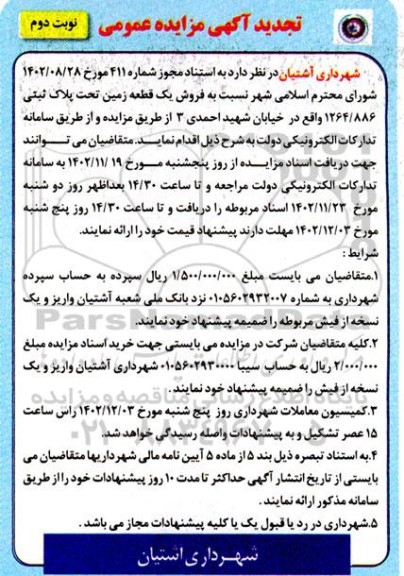 تجدید آگهی مزایده عمومی
نوبت دوم
شهرداری آشتیان در نظر دارد به استناد مجوز شماره ۴۱۱ مورخ ۱۴۰۲/۰۸/۲۸
شورای محترم اسلامی شهر نسبت به فروش یک قطعه زمین تحت پلاک ثبتی
۱۲۶۴/۸۸۶ واقع در خیابان شهید احمدی ۳ از طریق مزایده و از طریق سامانه
تدارکات الکترونیکی دولت به شرح ذیل اقدام نماید. متقاضیان می توانند
جهت دریافت اسناد مزایده از روز پنجشنبه مورخ ۱۴۰۲/۱۱/۱۹ به سامانه
تدارکات الکترونیکی دولت مراجعه و تا ساعت ۱۴/۳۰ بعداظهر روز دو شنبه
مورخ ۱۴۰۲/۱۱/۲۳ اسناد مربوطه را دریافت و تا ساعت ۱۴/۳۰ روز پنج شنبه
مورخ ۱۴۰۲/۱۲/۰۳ مهلت دارند پیشنهاد قیمت خود را ارائه نمایند.
شرایط :
۱.متقاضیان می بایست مبلغ ۱/۵۰۰/۰۰۰/۰۰۰ ریال سپرده به حساب سپرده
شهرداری به شماره ۰۱۰۵۶۰۲۹۳۲۰۰۷ نزد بانک ملی شعبه آشتیان واریز و یک
نسخه از فیش مربوطه را ضمیمه پیشنهاد خود نمایند.
۲.کلیه متقاضیان شرکت در مزایده می بایستی جهت خرید اسناد مزایده مبلغ
۲/۰۰۰/۰۰۰ ریال به حساب سیبا ۰۱۰۵۶۰۲۹۳۰۰۰۰ شهرداری آشتیان واریز و یک
نسخه از فیش را ضمیمه پیشنهاد خود نمایند .
۳.کمیسیون معاملات شهرداری روز پنج شنبه مورخ ۱۴۰۲/۱۲/۰۳ راس ساعت
۱۵ عصر تشکیل و به پیشنهادات واصله رسیدگی خواهد شد.
۴.به استناد تبصره ذیل بند ۵ از ماده ۵ آیین نامه مالی شهرداریها متقاضیان می
بایستی از تاریخ انتشار آگهی حداکثر تا مدت ۱۰ روز پیشنهادات خود را از طریق
سامانه مذکور ارائه نمایند .
۵.شهرداری در رد یا قبول یک یا کلیه پیشنهادات مجاز می باشد .
شهرداری آشتیان